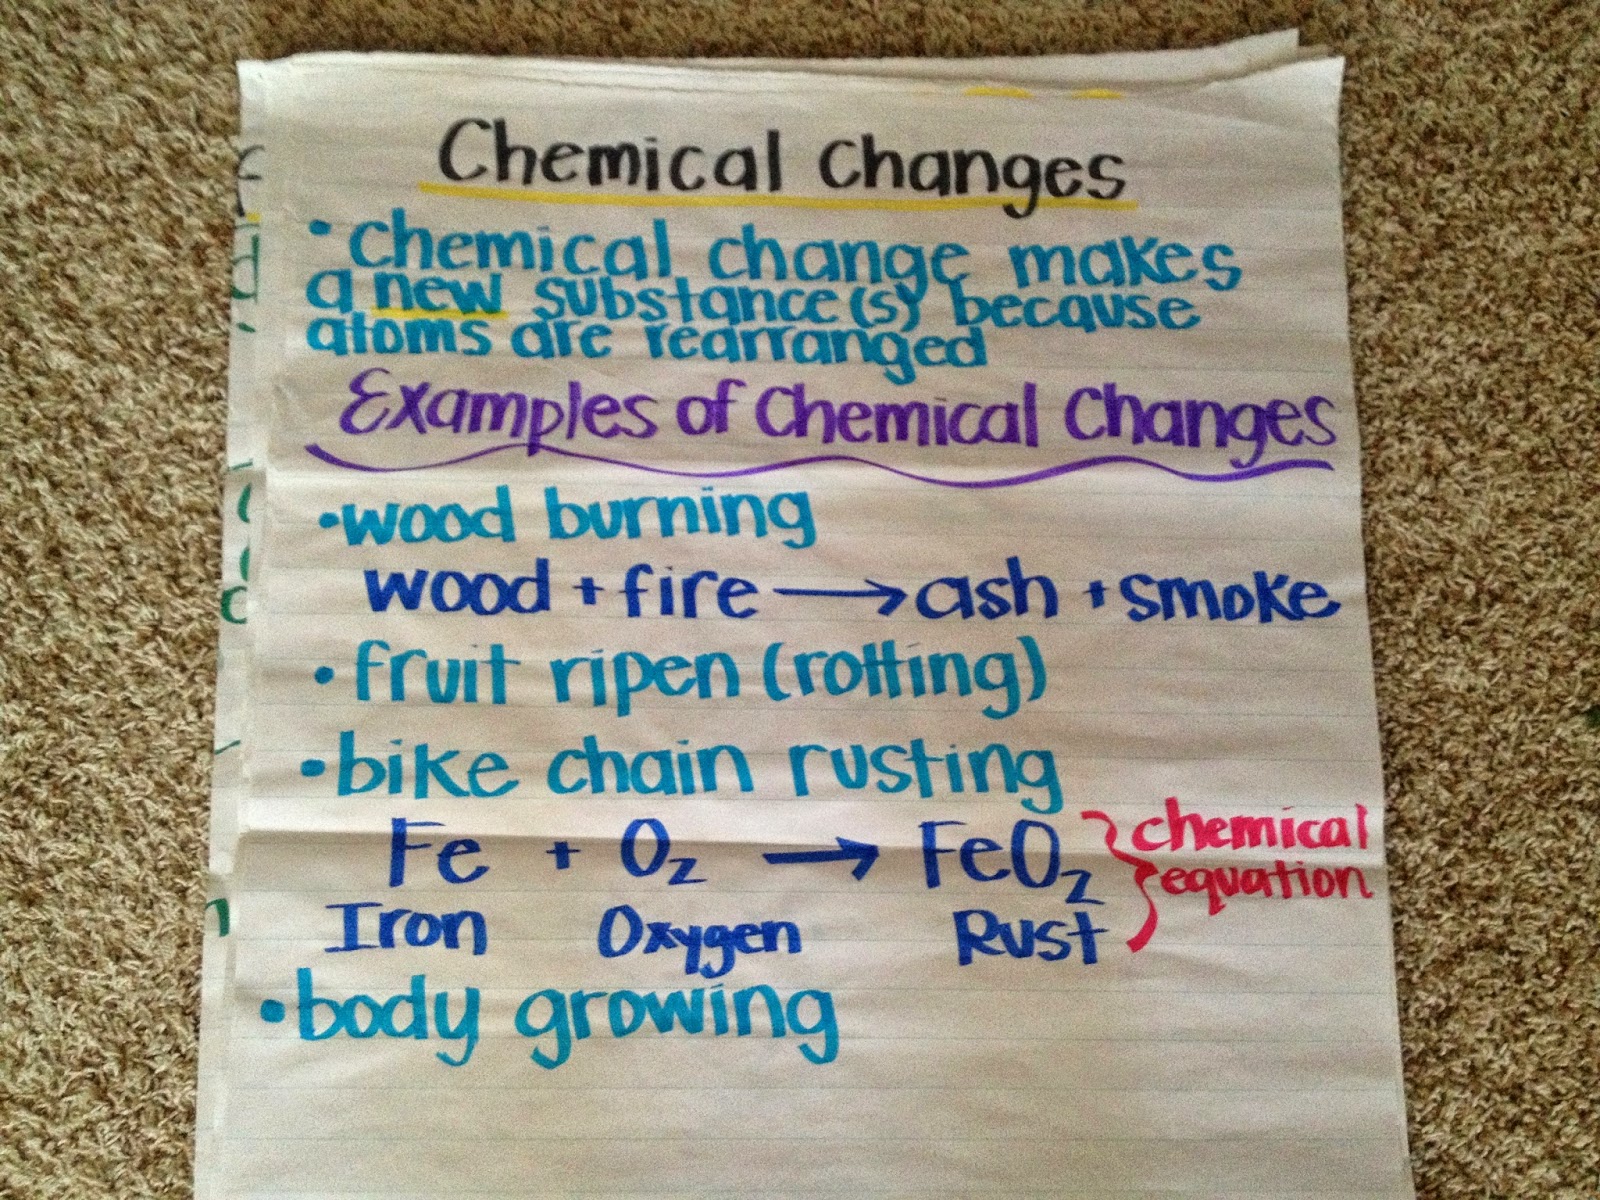 Chemical Changes
• chemical change makes
a new substance(s) because
atoms are rearranged
Examples of Chemical Changes
• wood burning
wood + fire → ash + smoke
• fruit ripen (rotting)
• bike chain rusting
Fe + O₂ → FeO₂ } chemical equation
Iron Oxygen Rust
• body growing